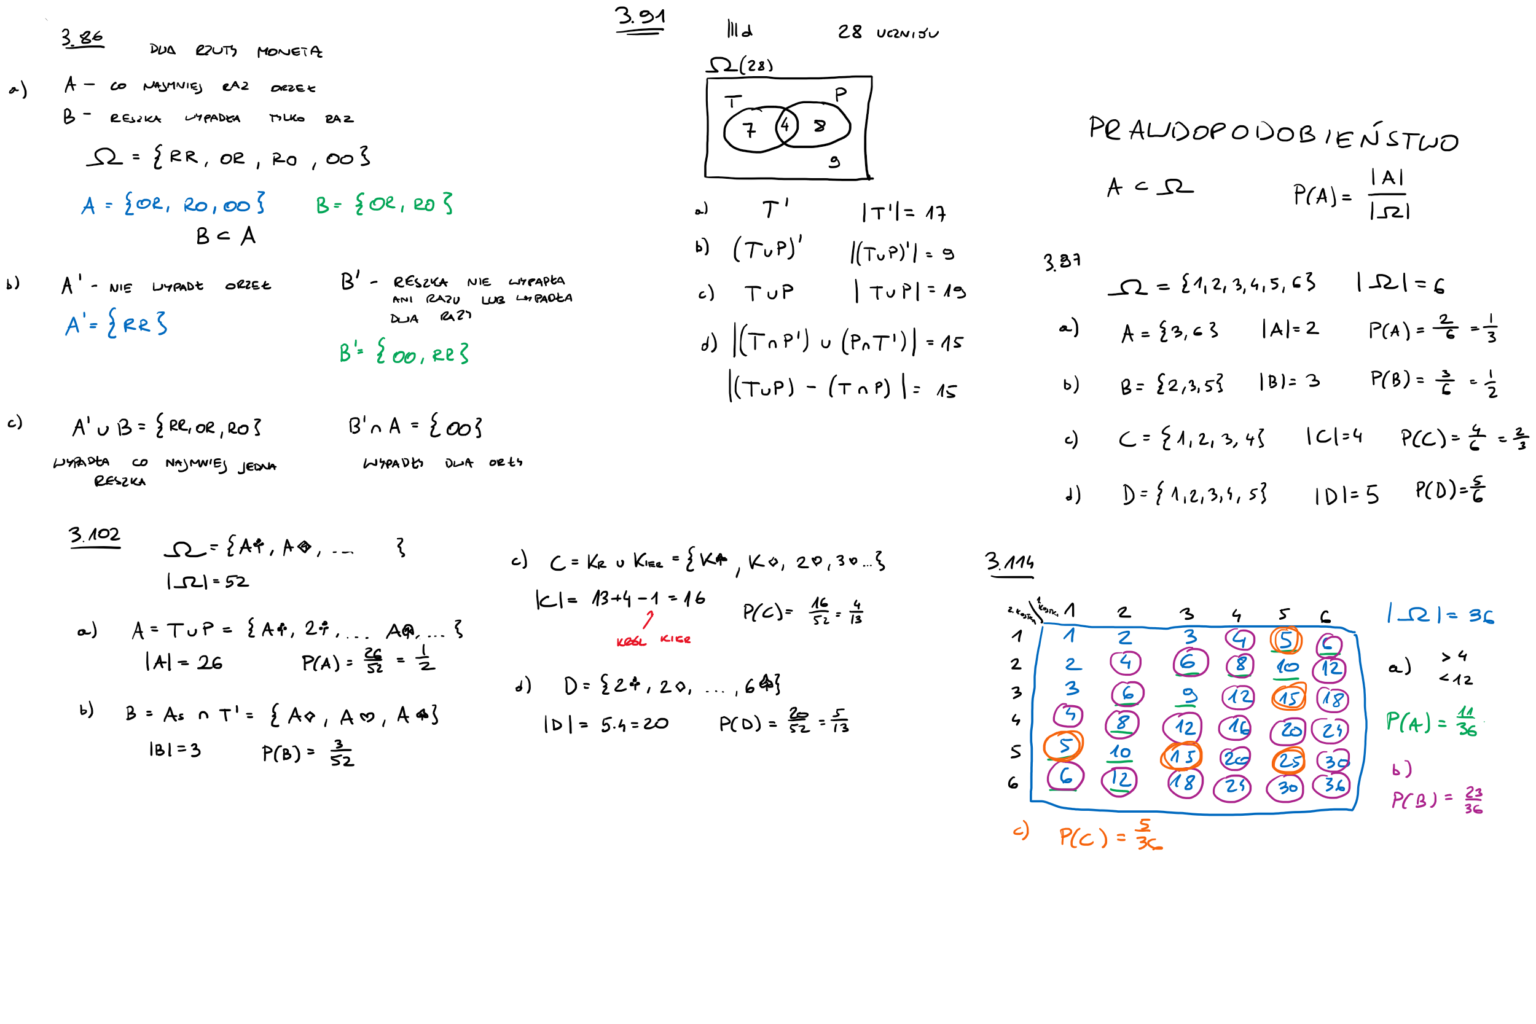 3.86 DWA RZUTY MONETĄ
a) A – CO NAJMNIEJ RAZ ORZEŁ
B – RESZKA WYPADŁA TYLKO RAZ
Ω = {RR, OR, RO, OO}
A = {OR, RO, OO} B = {OR, RO}
B ⊂ A
b) A' – NIE WYPADŁ ORZEŁ
A' = {RR}
B' – RESZKA NIE WYPADŁA
ANI RAZU LUB WYPADŁA
DWA RAZY
B' = {OO, RR}
c) A' ∪ B = {RR, OR, RO} B' ∩ A = {OO}
WYPADŁA CO NAJMNIEJ JEDNA
RESZKA
WYPADŁY DWA ORŁY
3.91 IIId 28 UCZNIÓW
Ω(28)
T P
7 4 8
9
a) T' |T'| = 17
b) (T∪P)' |(T∪P)'| = 9
c) T∪P |T∪P| = 19
d) |(T∩P') ∪ (P∩T')| = 15
|(T∪P) – (T∩P)| = 15
PRAWDOPODOBIEŃSTWO
A ⊂ Ω P(A) = |A|/|Ω|
3.97
Ω = {1,2,3,4,5,6} |Ω| = 6
a) A = {3,6} |A| = 2 P(A) = 2/6 = 1/3
b) B = {2,3,5} |B| = 3 P(B) = 3/6 = 1/2
c) C = {1,2,3,4} |C| = 4 P(C) = 4/6 = 2/3
d) D = {1,2,3,4,5} |D| = 5 P(D) = 5/6
3.102 Ω = {A♣, A♦, ... }
|Ω| = 52
a) A = T∪P = {A♣, 2♣, ... A♠, ...}
|A| = 26 P(A) = 26/52 = 1/2
b) B = As ∩ T' = {A♢, A♡, A♠}
|B| = 3 P(B) = 3/52
c) C = KR ∪ KIER = {K♠, K♢, 2♡, 3♡...}
|C| = 13+4–1 = 16 P(C) = 16/52 = 4/13
KRÓL KIER
d) D = {2♣, 2♢, ..., 6♠}
|D| = 5·4 = 20 P(D) = 20/52 = 5/13
3.114
2 KOSTKA 1 KOSTKA 1 2 3 4 5 6
1 1 2 3 4 5 6
2 2 4 6 8 10 12
3 3 6 9 12 15 18
4 4 8 12 16 20 24
5 5 10 15 20 25 30
6 6 12 18 24 30 36
|Ω| = 36
a) >4
<12
P(A) = 11/36
b)
P(B) = 23/36
c) P(C) = 5/36